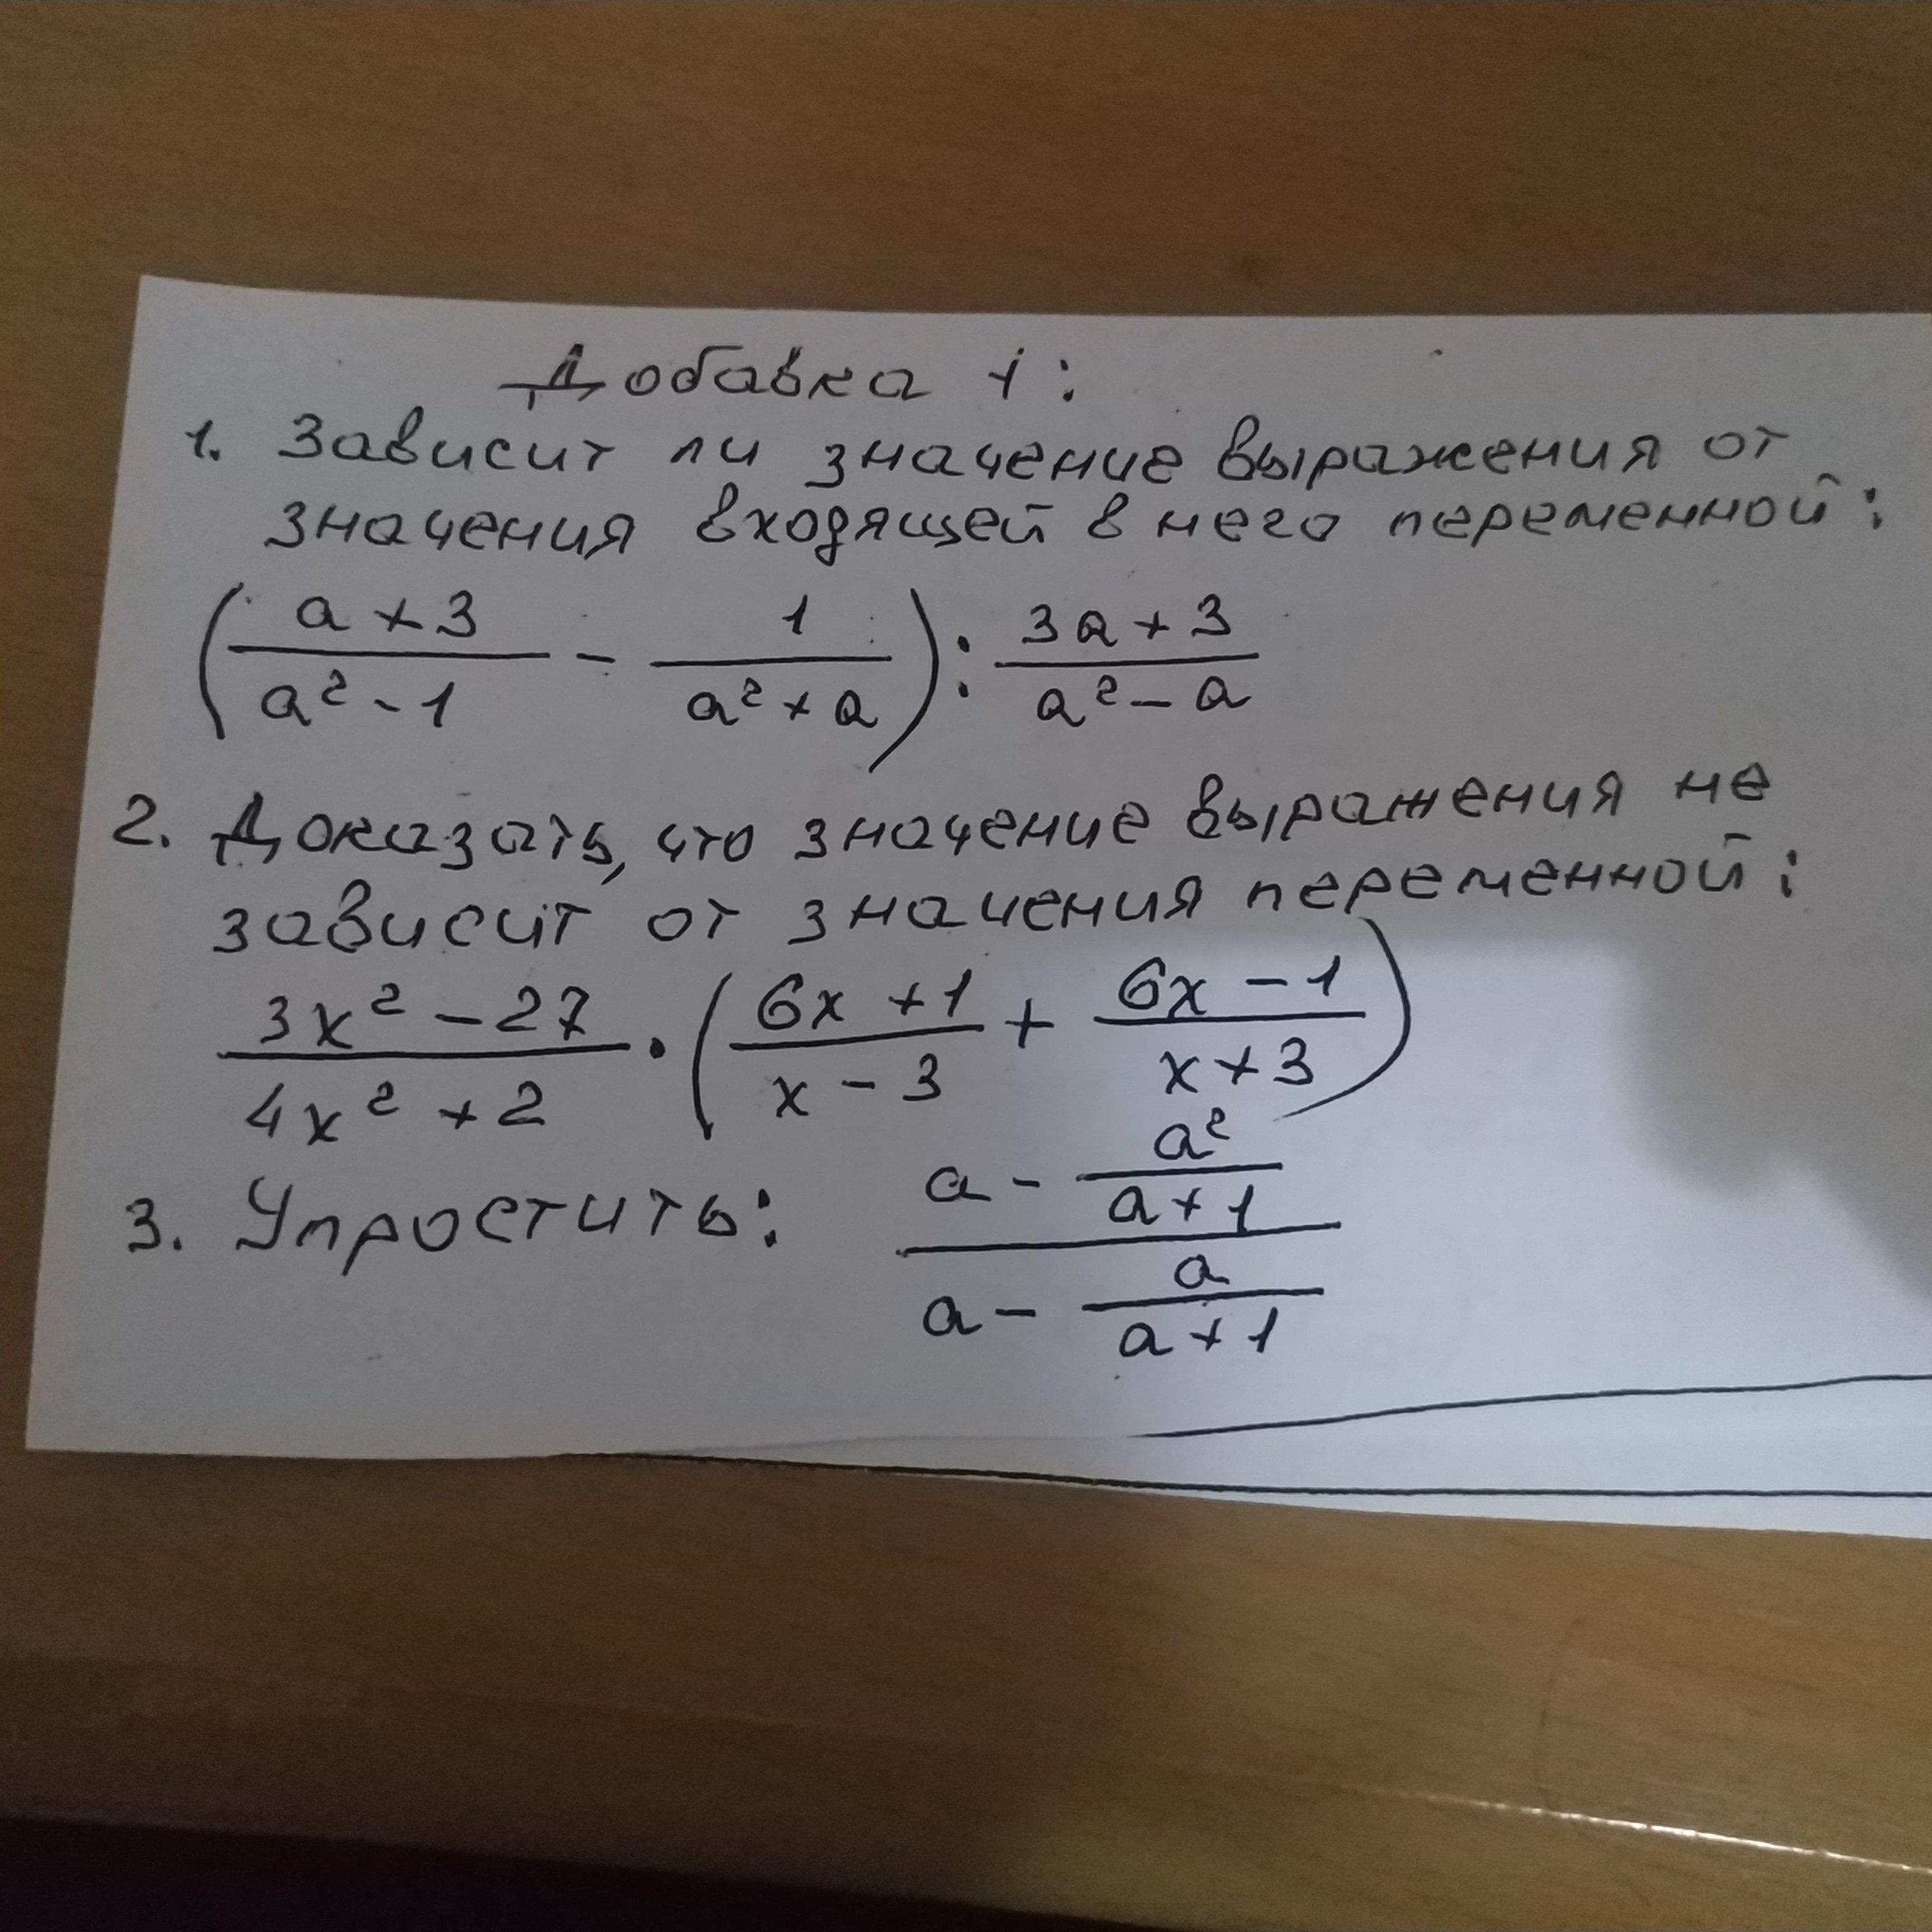 Добавка 1:
1. Зависит ли значение выражения от
значения входящей в него переменной:
(a+3/a²-1 - 1/a²+a) : 3a+3/a²-a
2. Доказать, что значение выражения не
зависит от значения переменной:
3x²-27/4x²+2 · (6x+1/x-3 + 6x-1/x+3)
3. Упростить: a - a²/a+1 / a - a/a+1